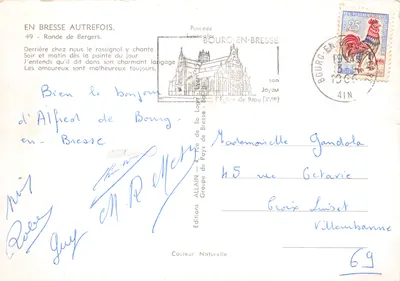 EN BRESSE AUTREFOIS.
49 - Ronde de Bergers.
Derrière chez nous le rossignol y chante
Soir et matin dès la pointe du jour
J'entends qu'il dit en son charmant langage
Les amoureux sont malheureux toujours.
BOURG-EN-BRESSE
son
Joyau
l'Eglise de Brou
BOURG-EN-
AIN
Bien le bonjour
d'Alfred de Bourg-
en-Bresse
Guy
M R
Editions ALLAIN
Groupe du Pays de Bresse
Couleur Naturelle
Mademoiselle Gandola
45 rue Octavie
Croix Luiset
Villeurbanne
69